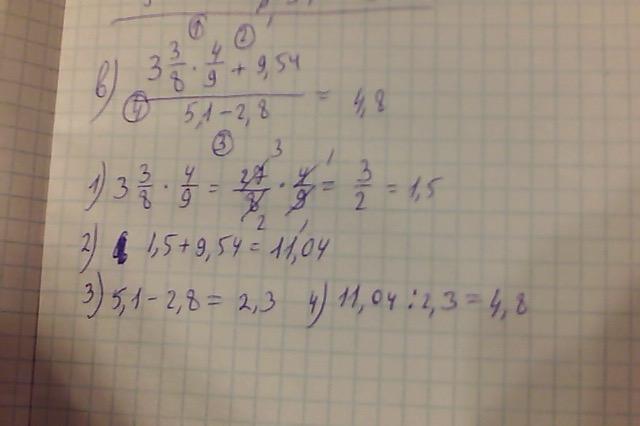 ① ②
в) (3 3/8 · 4/9 + 9,54) / (5,1 − 2,8) = 4,8
④ ③
1) 3 3/8 · 4/9 = 27/8 · 4/9 = 3/2 = 1,5
3 1
2 1
2) 1,5 + 9,54 = 11,04
3) 5,1 − 2,8 = 2,3 4) 11,04 : 2,3 = 4,8